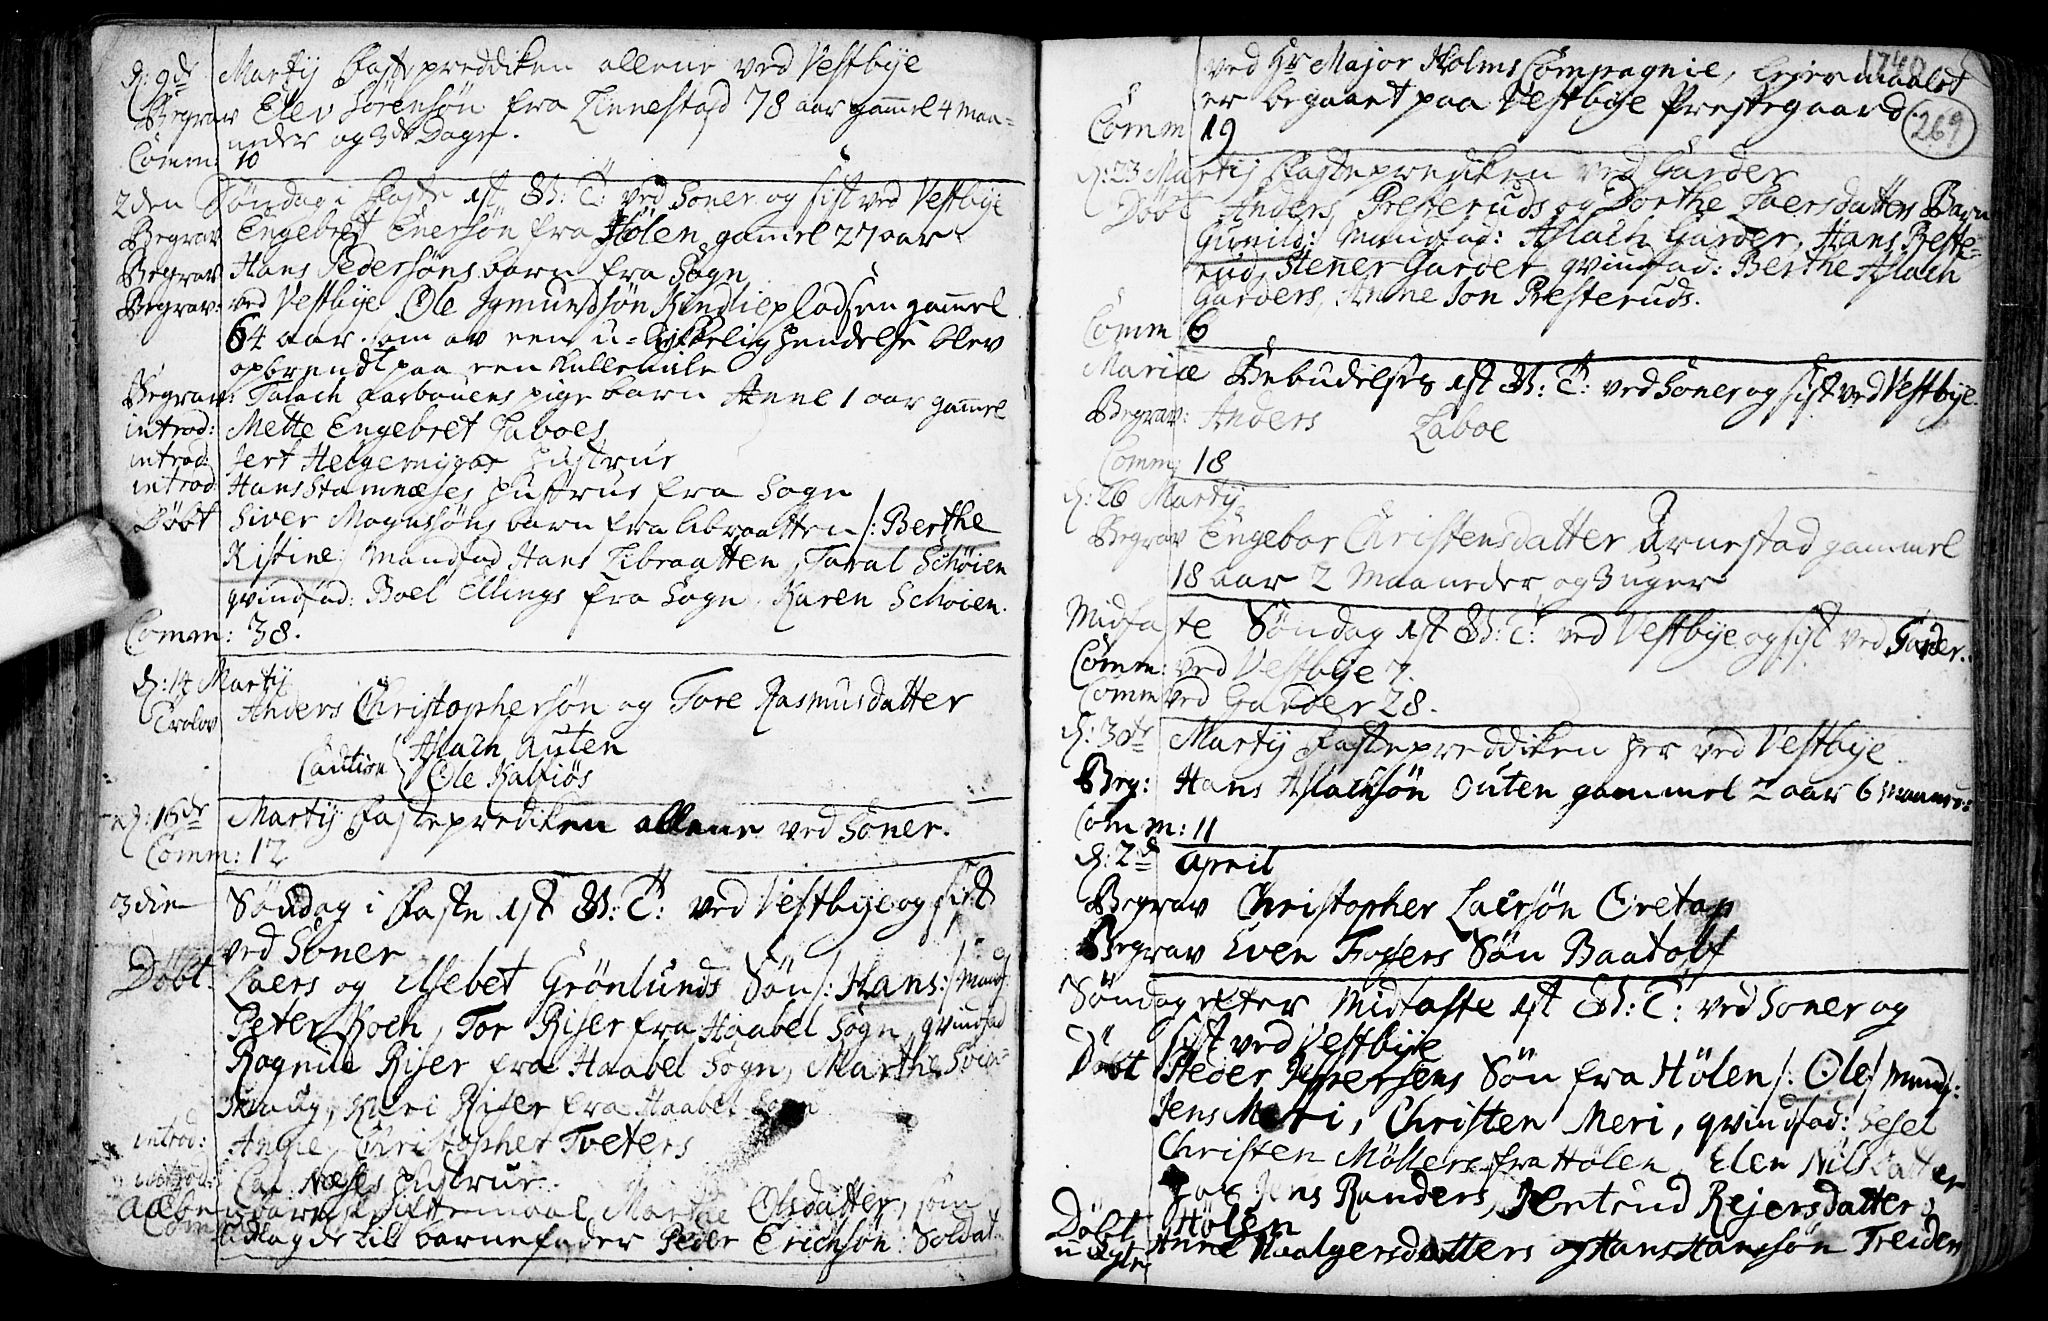 d: 9de Martij Fastepreddiken allene ved Vestbye
Begrav Elev Sørensøn fra Linnestad 78 aar gamel 4 maa=
neder og 3de Dage.
Comm: 10
2den Søndag i Faste 1st B: T: ved Soner og sist ved Vestbye
Begrav Engebret Enersøn fra Hølen gamel 27 aar
Begrav Hans Pedersøns barn fra Sogn
Begrav: ved Vestbye Ole Igmundsøn Kindliepladsen gamel
64 aar som av een u=lykkelig hendelse blev
opbrendt paa een Kullemile
Begrav: Falach Farbouens pige barn Anne 1 aar gamel
introd: Mette Engebret Laboes
introd: Hustrue
introd: Hans Stamnæses Hustrue fra Sogn
Døbt Siver Magnsøns barn fra Libraatten /: Berthe
Kistine: Mandfad Hans Libraatten, Taral Schøien
qvindfad: Boel Ellings fra Sogn, Karen Schøien.
Comm: 38.
d: 14 Martij
Trolov Anders Christophersøn og Tore Rasmusdatter
Caution Aslach Auten
Ole Kalfiøs
d: 16de Martij Fasteprediken allene ved Soner.
Comm: 12
3die Søndag i Faste 1st B: T: ved Vestbye og sist
ved Soner
Døbt Laers og Elsebet Grønlunds Søn /: Hans :/ Mandf:
Peter Koch, Tor Riser fra Haabel Sogn, qvindfad
Ragnild Riser fra Haabel Sogn, Marthe
Kari Riser fra Haabel Sogn
introd: Anne Christopher Tveters
introd: Næses Hustrue.
Aabenbare Marthe Olsdatter, som
udlagde till barnefader Peder Erichsøn Soldat
1740
269
ved Hr Major Holms Compagnie, leiermaalet
er begaaet paa Vestbye Prestegaard.
Comm 19
d: 23 Martij Fasteprediken ved Garder
Døbt Anders Presteruds og Dorthe Laersdatters Barn
Gunild: Mandfad: Aslach Garder, Hans Preste=
rud, Stener Garder, qvindfad: Berthe Aslach
Garders, Anne Jon Presteruds.
Comm 6
Mariæ Bebudelses 1st B: T: ved Soner og sist ved Vestbye.
Begrav: Anders Laboe
Comm: 18
d: 26 Martij
Begrav Engebor Christensdatter Arnestad gammel
18 aar 2 Maaneder og 3 uger
Midfaste Søndag 1st B: T: ved Vestbye og sist ved Garder.
Comm: ved Vestbye 7.
Comm ved Garder 28.
d: 30de Martij Fastepreddiken her ved Vestbye
Beg: Hans Aslachsøn Outen gammel 2 aar 6 maaneder
Comm: 11
d: 2d April
Begrav Christopher Laersøn Oretap
Begrav Even Søn
Søndag efter Midfaste 1st B: T: ved Soner og
sist ved Vestbye
Døbt Peder Søn fra Hølen /: Ole / Mandf:
Jens Meri, Christen Meri, qvindfad: Sesel
Christen Møllers fra Hølen, Elen Nilsdatter
Jens Randers, Jertrud Rejersdatter
Hølen
Døbt Anne og Hans Hansøn Treiden